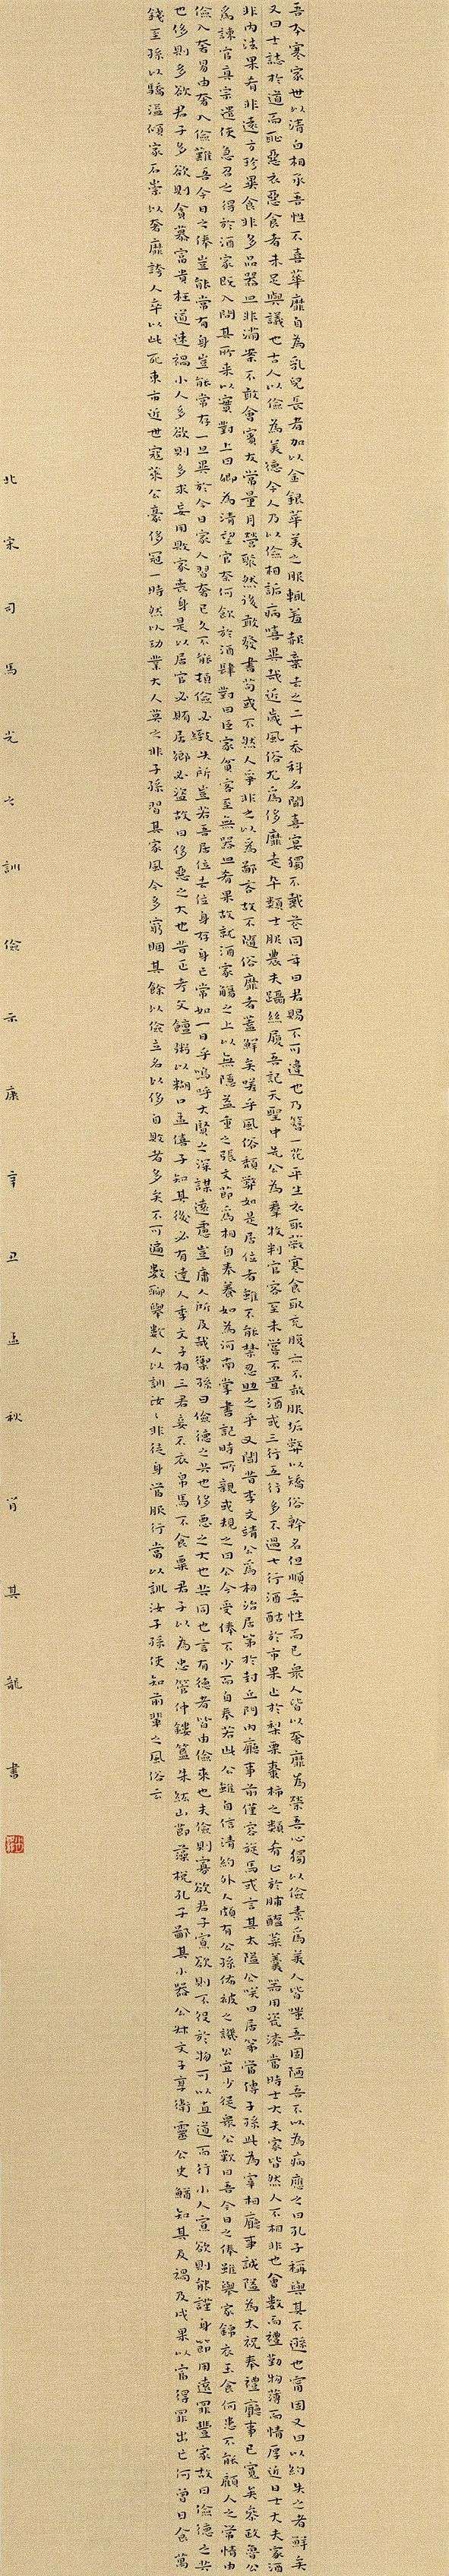 吾本寒家世以清白相承吾性不喜華靡自為乳兒長者加以金銀華美之服輒羞赧棄去之二十忝科名聞喜宴獨不戴花同年曰君賜不可違也乃簪一花平生衣取蔽寒食取充腹亦不敢服垢弊以矯俗幹名但順吾性而已衆人皆以奢靡為榮吾心獨以儉素為美人皆嗤吾固陋吾不以為病應之曰孔子稱與其不遜也寧固又曰以約失之者鮮矣
又曰士誌於道而恥惡衣惡食者未足與議也古人以儉為美德今人乃以儉相詬病嘻異哉近歲風俗尤為侈靡走卒類士服農夫躡絲履吾記天聖中先公為羣牧判官客至未嘗不置酒或三行五行多不過七行酒酤於市果止於梨栗棗柿之類肴止於脯醢菜羹器用瓷漆當時士大夫家皆然人不相非也會數而禮勤物薄而情厚近日士大夫家酒
非內法果肴非遠方珍異食非多品器皿非滿案不敢會賓友常量月營聚然後敢發書苟或不然人爭非之以為鄙吝故不隨俗靡者蓋鮮矣嗟乎風俗頹弊如是居位者雖不能禁忍助之乎又聞昔李文靖公為相治居第於封丘門內廳事前僅容旋馬或言其太隘公笑曰居第當傳子孫此為宰相廳事誠隘為太祝奉禮廳事已寬矣參政魯公
為諫官真宗遣使急召之得於酒家既入問其所來以實對上曰卿為清望官奈何飲於酒肆對曰臣家貧客至無器皿肴果故就酒家觴之上以無隱益重之張文節為相自奉養如為河南掌書記時所親或規之曰公今受俸不少而自奉若此公雖自信清約外人頗有公孫布被之譏公宜少從衆公歎曰吾今日之俸雖舉家錦衣玉食何患不能顧人之常情由
儉入奢易由奢入儉難吾今日之俸豈能常有身豈能常存一旦異於今日家人習奢已久不能頓儉必致失所豈若吾居位去位身存身亡常如一日乎嗚呼大賢之深謀遠慮豈庸人所及哉禦孫曰儉德之共也侈惡之大也共同也言有德者皆由儉來也夫儉則寡欲君子寡欲則不役於物可以直道而行小人寡欲則能謹身節用遠罪豐家故曰儉德之共
也侈則多欲君子多欲則貪慕富貴枉道速禍小人多欲則多求妄用敗家喪身是以居官必賄居鄉必盜故曰侈惡之大也昔正考父饘粥以糊口孟僖子知其後必有達人季文子相三君妾不衣帛馬不食粟君子以為忠管仲鏤簋朱紘山節藻梲孔子鄙其小器公叔文子享衛靈公史鰌知其及禍及戌果以富得罪出亡何曾日食萬
錢至孫以驕溢傾家石崇以奢靡誇人卒以此死東市近世寇萊公豪侈冠一時然以功業大人莫之非子孫習其家風今多窮困其餘以儉立名以侈自敗者多矣不可遍數聊舉數人以訓汝〻非徒身當服行當以訓汝子孫使知前輩之風俗云
北宋司馬光之訓儉示康辛丑孟秋肖其龍書